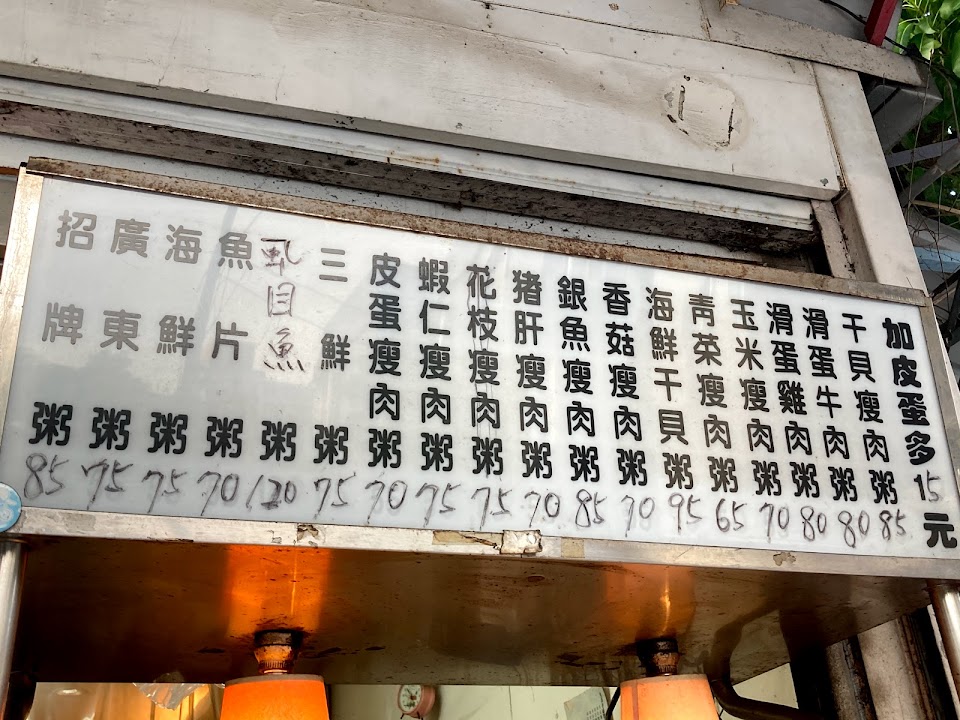 招牌粥85
廣東粥75
海鮮粥75
魚片粥70
虱目魚粥120
三鮮粥75
皮蛋瘦肉粥70
蝦仁瘦肉粥75
花枝瘦肉粥75
猪肝瘦肉粥70
銀魚瘦肉粥85
香菇瘦肉粥70
海鮮干貝粥95
青菜瘦肉粥65
玉米瘦肉粥70
滑蛋雞肉粥80
滑蛋牛肉粥80
干貝瘦肉粥85
加皮蛋多15元